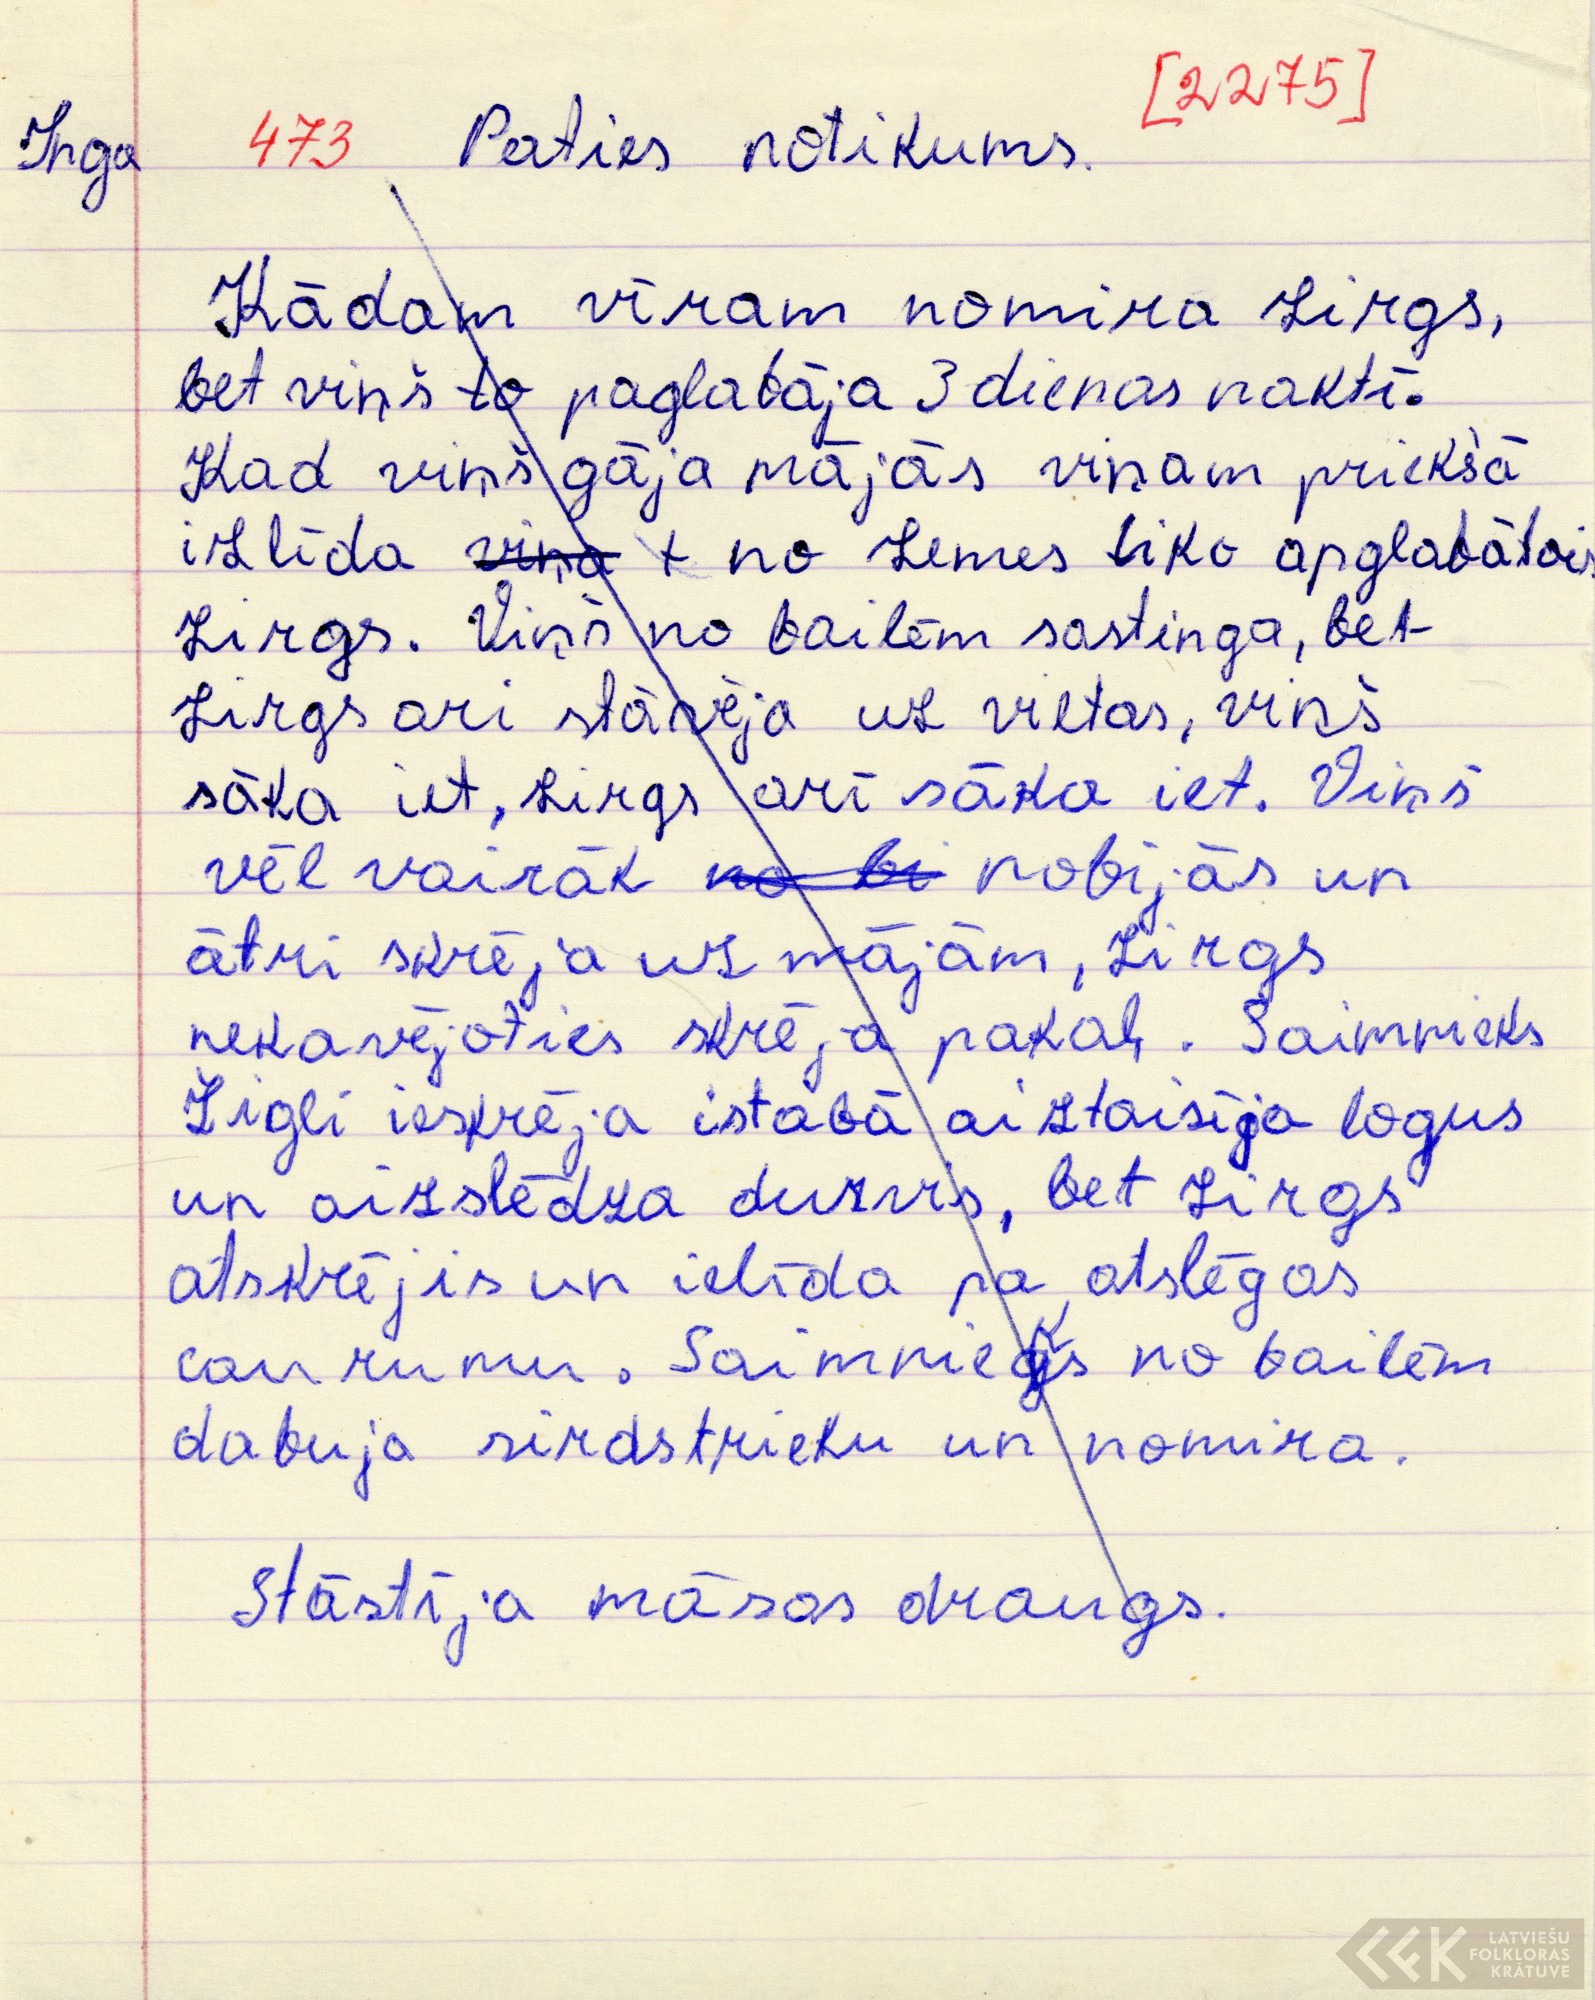 [2275]
Inga 473 Paties notikums.
Kādam vīram nomira zirgs,
bet viņš to paglabāja 3 dienas naktī.
Kad viņš gāja mājās viņam priekšā
izlīda viņa + no zemes tiko apglabātais
zirgs. Viņš no bailēm sastinga, bet
zirgs ari stāvēja uz vietas, viņš
sāka iet, zirgs arī sāka iet. Viņš
vēl vairāk no bi nobijās un
ātri skrēja uz mājām, zirgs
nekavējoties skrēja pakaļ. Saimnieks
žigli ieskrēja istabā aiztaisīja logus
un aizslēdza durvis, bet zirgs
atskrējis un ielīda pa atslēgas
caurumu. Saimnieks no bailēm
dabuja sirdstrieku un nomira.
Stāstīja māsas draugs.
LATVIEŠU
FOLKLORAS
KRĀTUVE